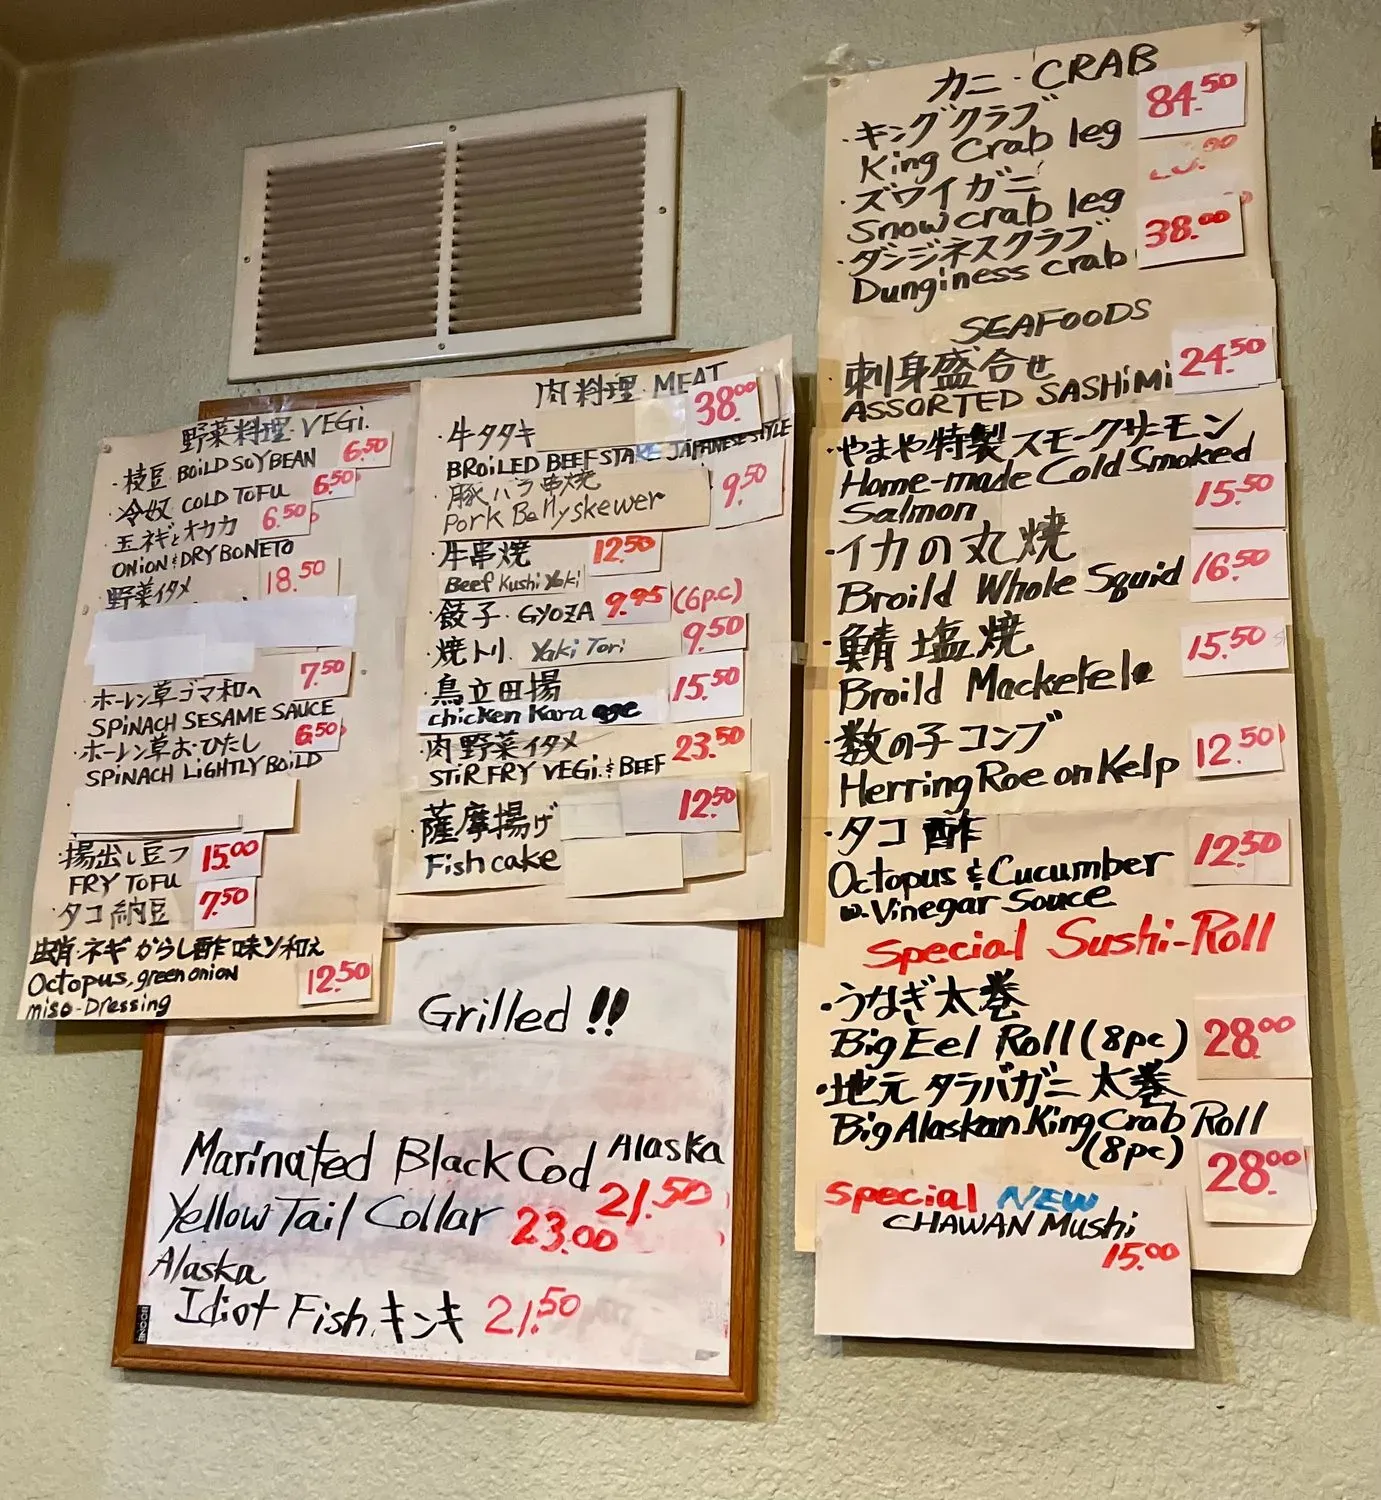 野菜料理・VEGi.
・枝豆 BOiLD SOYBEAN 6.50
・冷奴 COLD TOFU 6.50
・玉ネギとオカカ 6.50
ONiON & DRY BONETO
・野菜イタメ 18.50
・ホーレン草ゴマ和へ 7.50
SPiNACH SESAME SAUCE
・ホーレン草おひたし 6.50
SPiNACH LiGHTLY BOiLD
・揚出し豆フ 15.00
FRY TOFU
・タコ納豆 7.50
蛸・ネギからし酢味ソ和え
Octopus, green onion 12.50
miso-Dressing
肉料理・MEAT
・牛タタキ 38.00
BROiLED BEEF STAKE JAPANESE STYLE
・豚バラ串焼 9.50
Pork Bellyskewer
・牛串焼 12.50
Beef Kushi Yaki
・餃子・GYOZA 9.95 (6p.c)
・焼トリ. Yaki Tori 9.50
・鳥立田揚 15.50
chicken Kara age
・肉野菜イタメ 23.50
STiR FRY VEGi. & BEEF
・薩摩揚げ 12.50
Fish cake
Grilled !!
Marinated Black Cod Alaska
21.50
Yellow Tail Collar 23.00
Alaska
Idiot Fish, キンキ 21.50
カニ・CRAB
・キングクラブ 84.50
King Crab leg
・ズワイガニ
Snow crab leg
・ダンジネスクラブ 38.00
Dunginess crab
SEAFOODS
・刺身盛合せ 24.50
ASSORTED SASHiMi
・やまや特製スモークサーモン
Home-made Cold Smoked
Salmon 15.50
・イカの丸焼
Broild Whole Squid 16.50
・鯖塩焼 15.50
Broild Mackerele
・数の子コンブ
Herring Roe on Kelp 12.50
・タコ酢
Octopus & Cucumber 12.50
w. Vinegar Souce
Special Sushi-Roll
・うなぎ太巻
Big Eel Roll (8pc) 28.00
・地元タラバガニ太巻
Big Alaskan King Crab Roll
(8pc) 28.00
Special NEW
CHAWAN Mushi
15.00